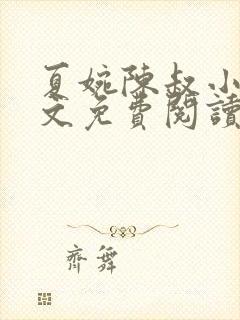 夏婉陳叔小
文免費閱讀
齊舞